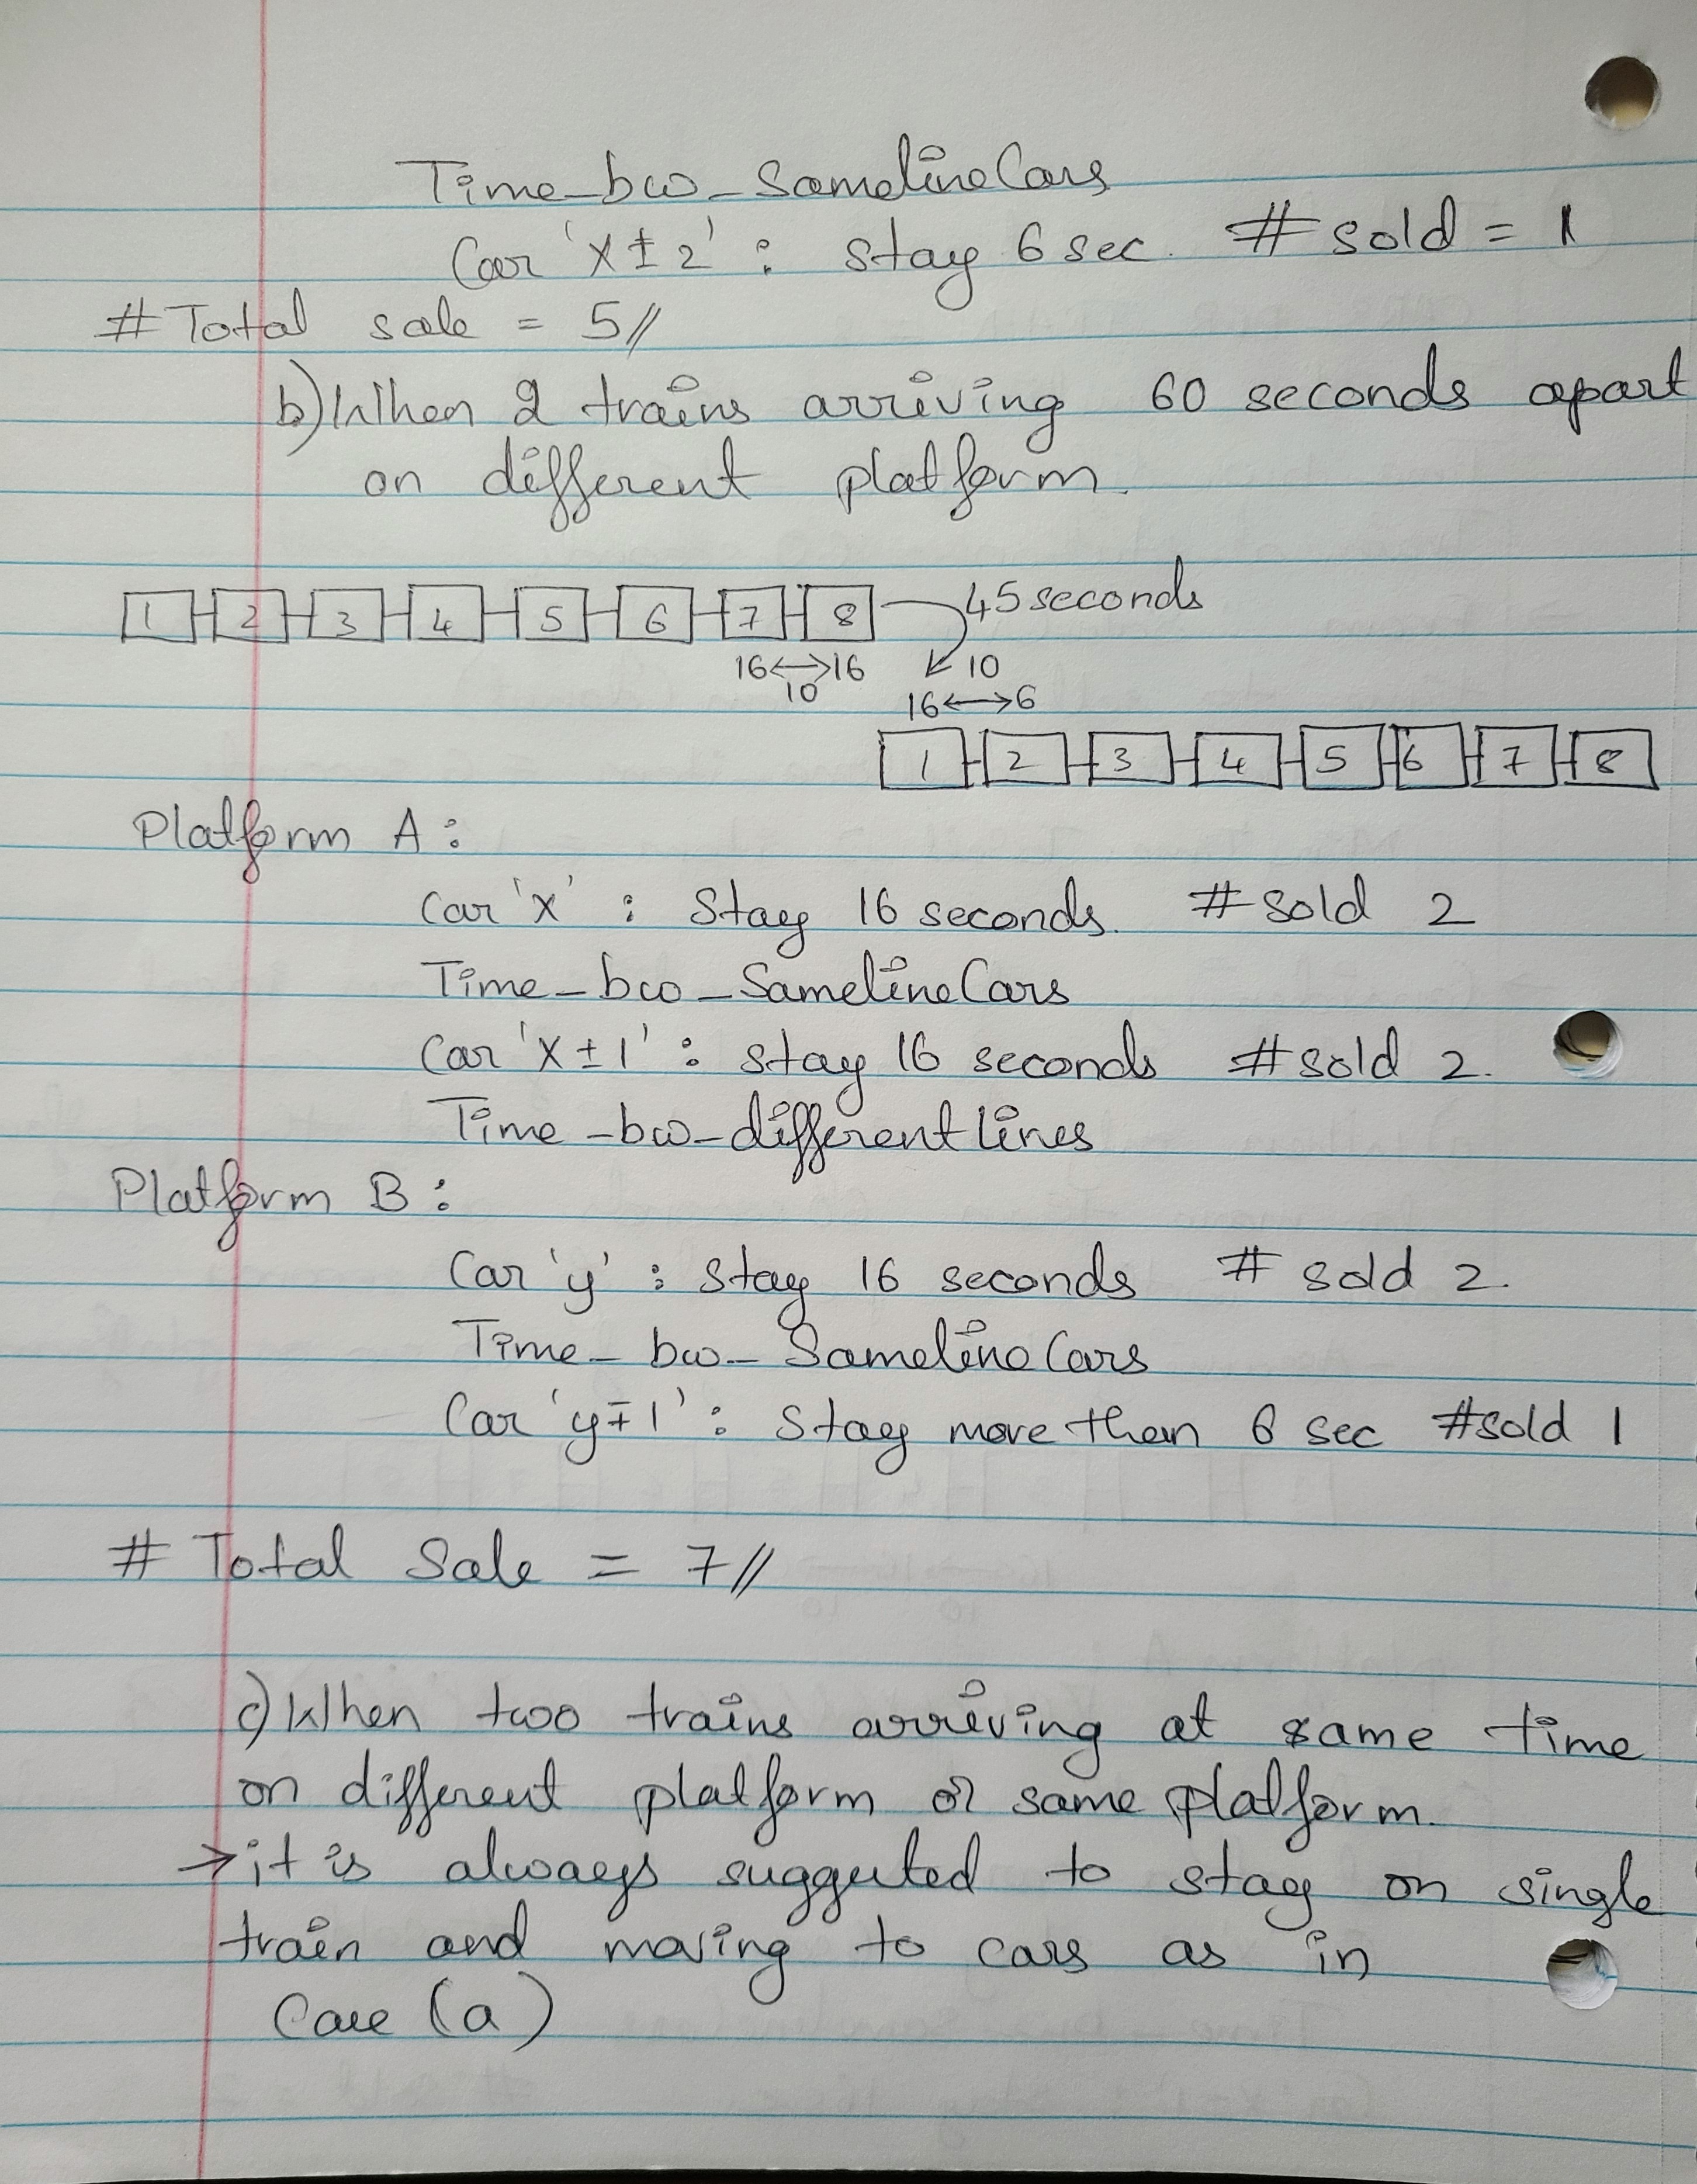 Time-bw-SamelineCars
Car 'x±2' : stay 6 sec. # sold = 1
# Total sale = 5//
b) When 2 trains arriving 60 seconds apart
on different platform.
1 2 3 4 5 6 7 8 45 seconds
16↔16 10
10
16↔6
1 2 3 4 5 6 7 8
Platform A :
Car 'x' : Stay 16 seconds. # Sold 2
Time-bw-SamelineCars
Car 'x±1' : stay 16 seconds # sold 2.
Time-bw-differentlines
Platform B :
Car 'y' : stay 16 seconds # sold 2.
Time-bw-SamelineCars
Car 'y∓1' : Stay more than 6 sec #sold 1
# Total Sale = 7//
c) When two trains arriving at same time
on different platform or same platform.
→ it is always sugguted to stay on single
train and moving to cars as in
Case (a)